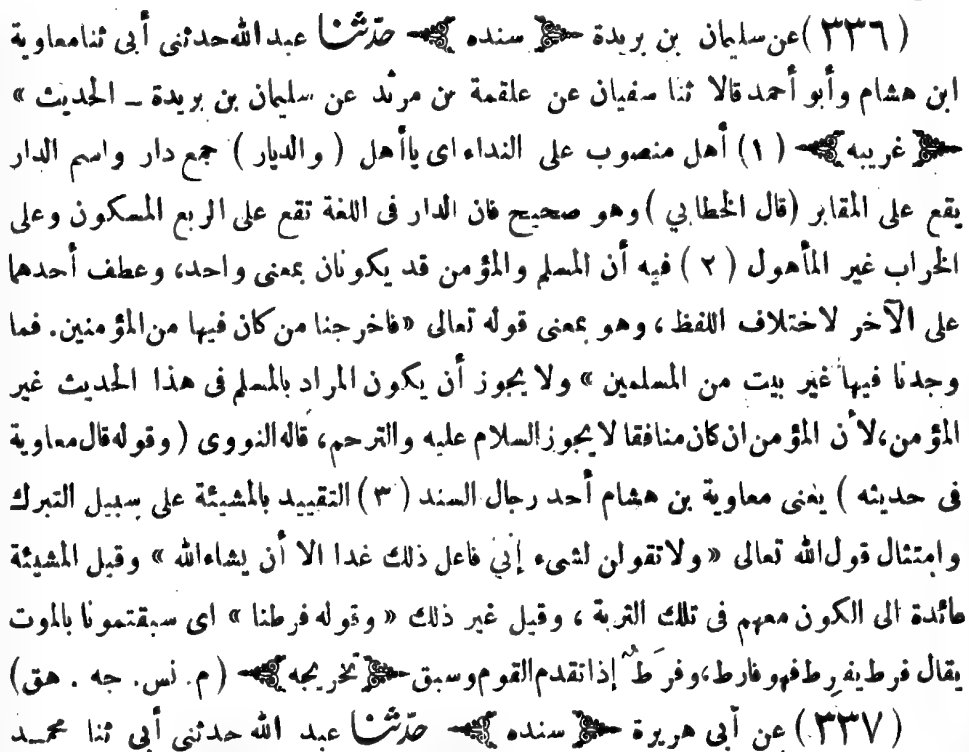 (٣٣٦) عن سليمان بن بريدة ﴿ سنده ﴾ حدّثنا عبد الله حدثنى أبى ثنا معاوية
ابن هشام وأبو أحمد قالا ثنا سفيان عن علقمة بن مرثد عن سليمان بن بريدة ــ الحديث »
﴿ غريبه ﴾ (١) أهل منصوب على النداء اى ياأهل ( والديار ) جمع دار واسم الدار
يقع على المقابر (قال الخطابي) وهو صحيح فان الدار فى اللغة تقع على الربع المسكون وعلى
الخراب غير المأهول (٢) فيه أن المسلم والمؤمن قد يكونان بمعنى واحد، وعطف أحدهما
على الآخر لاختلاف اللفظ، وهو بمعنى قوله تعالى «فاخرجنا من كان فيها من المؤمنين. فما
وجدنا فيها غير بيت من المسلمين » ولا يجوز أن يكون المراد بالمسلم فى هذا الحديث غير
المؤمن، لأن المؤمن ان كان منافقا لا يجوز السلام عليه والترحم، قاله النووى ( وقوله قال معاوية
فى حديثه ) يعنى معاوية بن هشام أحد رجال السند (٣) التقييد بالمشيئة على سبيل التبرك
وامتثال قول الله تعالى « ولا تقولن لشىء إني فاعل ذلك غدا الا أن يشاء الله » وقيل المشيئة
عائدة الى الكون معهم فى تلك التربة ، وقيل غير ذلك « وقوله فرطنا » اى سبقتمونا بالموت
يقال فرط يفرِط فهو فارط، وفرَطٌ إذا تقدم القوم وسبق ﴿ تخريجه ﴾ (م. نس. جه . هق)
(٣٣٧) عن أبى هريرة ﴿ سنده ﴾ حدّثنا عبد الله حدثنى أبى ثنا محمد